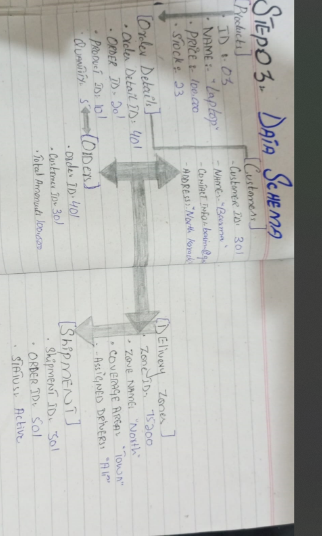 STEP03: DATA SCHEMA
[Products]
• ID: 03
• NAME: "Laptop"
• PRICE: 100,000
• STOCK: 23
[Customers]
- Customer ID: 301
- NAME: "Basma"
- Contact Info:
- ADDRESS: "North
[Order Details]
• Order Detail ID: 401
• ORDER ID: 201
• PRODUCT ID: 101
Quantity: 5
[ORDER]
• Order ID: 401
• Customer ID: 301
• Total Amount:
[Delivery Zones]
• ZONE ID: 75200
• ZONE NAME: "North"
• COVERAGE AREA: "Town"
- ASSIGNED DRIVERS: "Ali"
[ShipMENT]
• Shipment ID: 501
• ORDER ID: 501
• STATUS: Active